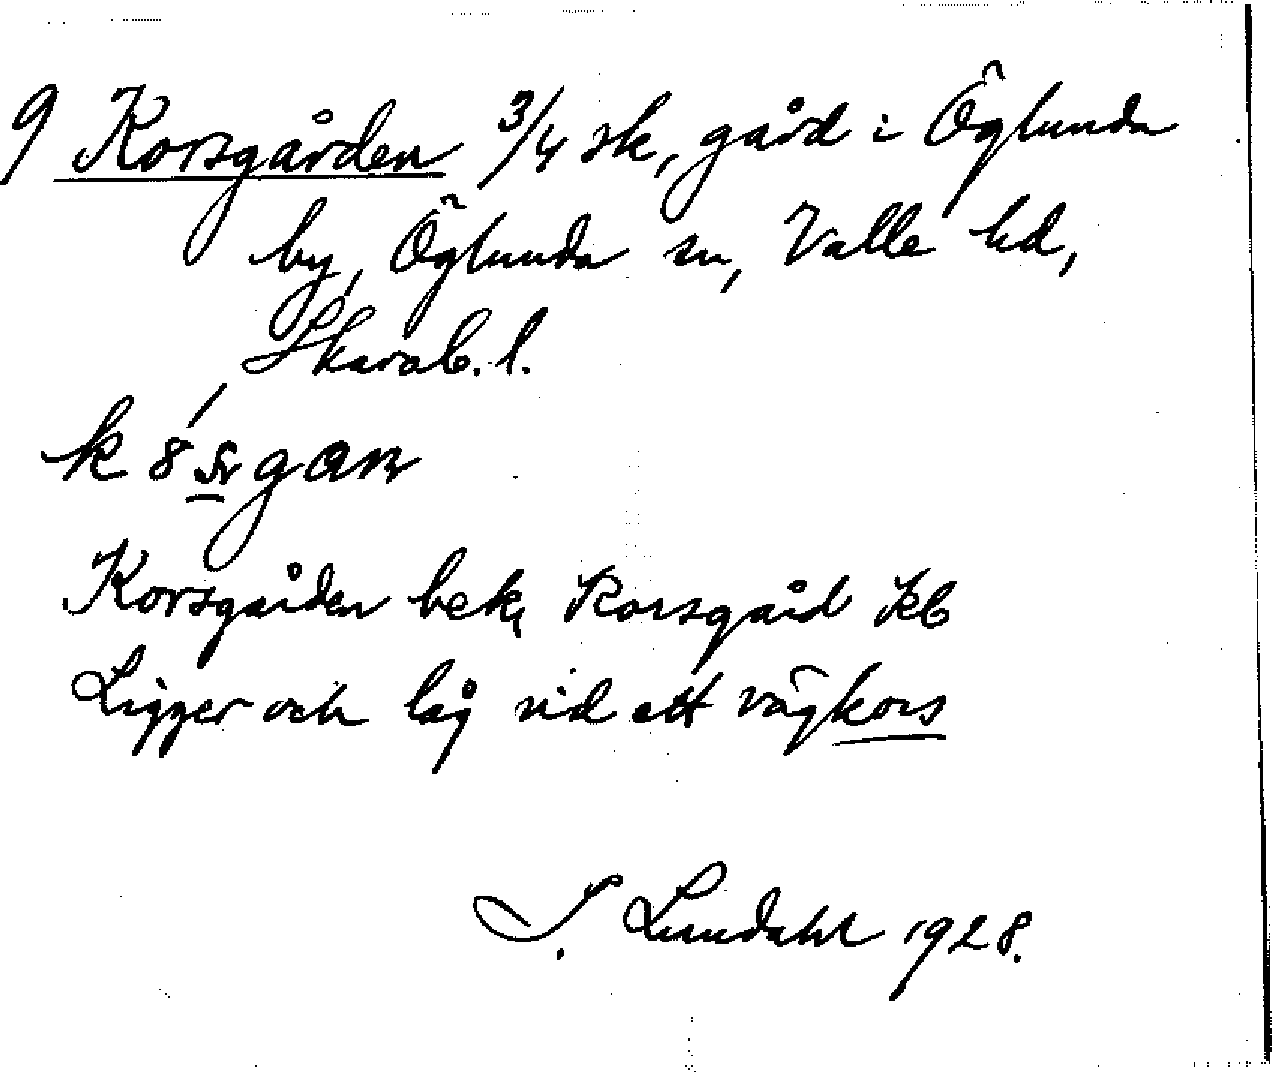 9 Korsgården 3/4 sk, gård i Öglunda
by, Öglunda sn, Valle hd,
Skarab. l.
Korsgården bek, Korsgård Kb
Ligger och låg vid ett vägkors
I. Lundahl 1928.